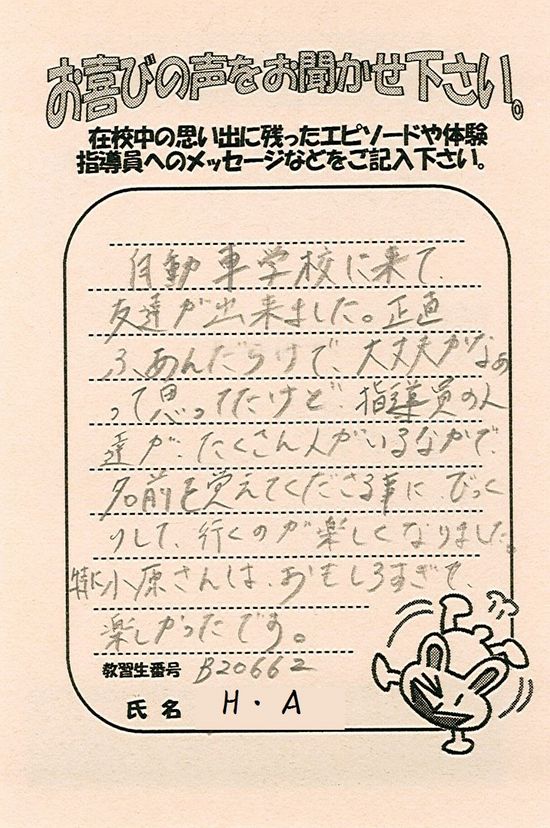 お喜びの声をお聞かせ下さい。
在校中の思い出に残ったエピソードや体験
指導員へのメッセージなどをご記入下さい。
自動車学校に来て、
友達が出来ました。正直
ふあんだらけで、大丈夫かなぁ
って思ってたけど、指導員の人
達が、たくさん人がいるなかで、
名前を覚えてくださる事に、びっく
りして、行くのが楽しくなりました。
特に小原さんは、おもしろすぎて、
楽しかったです。
教習生番号 B20662
氏名 H・A